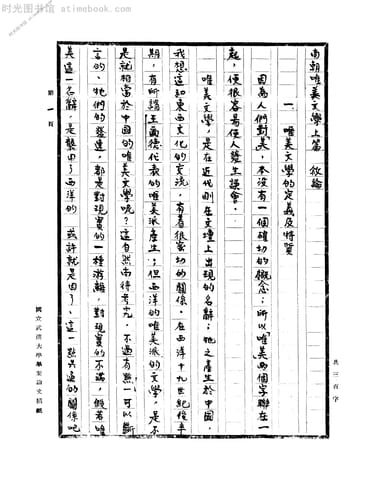 时光图书馆 atimebook.com
南朝唯美文學上篇 敘論
一 唯美文學的定義及特質
因為人們對「美」,本沒有一個確切的概念;所以「唯美」兩個字聯在一
起,便很容易使人發生誤會。
唯美文學,是在近代剛在文壇上出現的名辭;牠之產生於中國,
我想這和東西文化的交流,有着很密切的關係。在西洋十九世紀後半
期,有所謂王爾德代表的唯美派產生;但西洋的唯美派的文學,是不
是就相當於中國的唯美文學呢?這自然尚待考究,不過有點可以斷
言的,牠們的發達,都是對現實的一種游離,對現實的不滿,假若唯
美這一名辭,是襲由了西洋的 或許就是由了、這一點共通的關係吧
第一頁
國立武漢大學畢業論文稿紙
共三百字
时光图书馆 atimebook.com